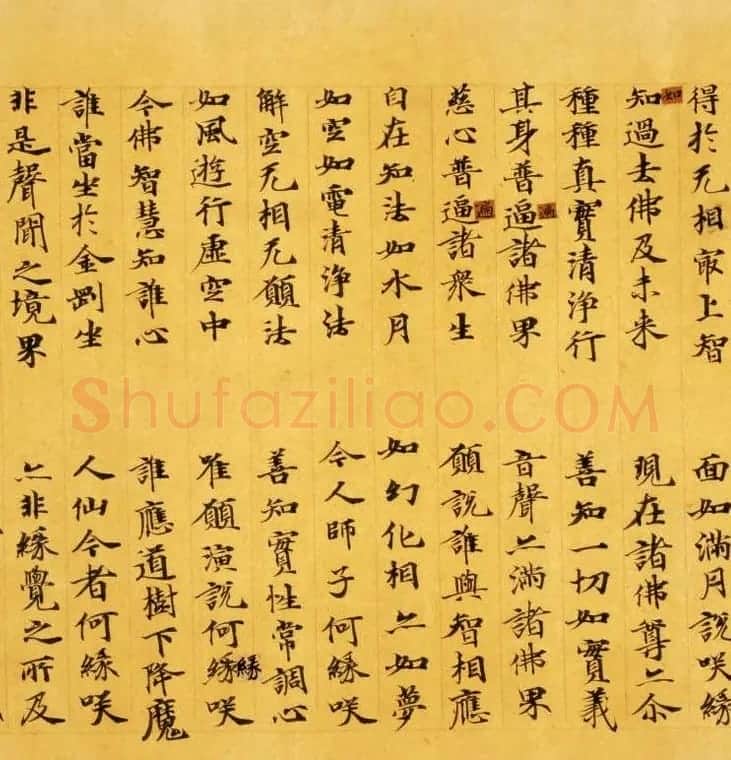 得於无相㝡上智 面如滿月說咲緣
知過去佛及未来 現在諸佛尊亦尒
如
種種真實清浄行 善知一切如實義
其身普逼諸佛界 音聲亦滿諸佛界
遍
慈心普逼諸衆生 願說誰與智相應
遍
自在知法如水月 如幻化相亦如夢
如空如電清浄法 今人師子何緣咲
解空无相无願法 善知實性常調心
如風遊行虛空中 唯願演說何緣咲
緣
今佛智慧知誰心 誰應道樹下降魔
誰當坐於金剛坐 人仙今者何緣咲
非是聲聞之境界 亦非緣覺之所及
Shufaziliao.COM